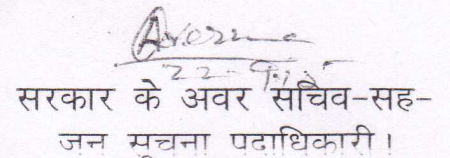 सरकार के अवर सचिव-सह-
जन सूचना पदाधिकारी।